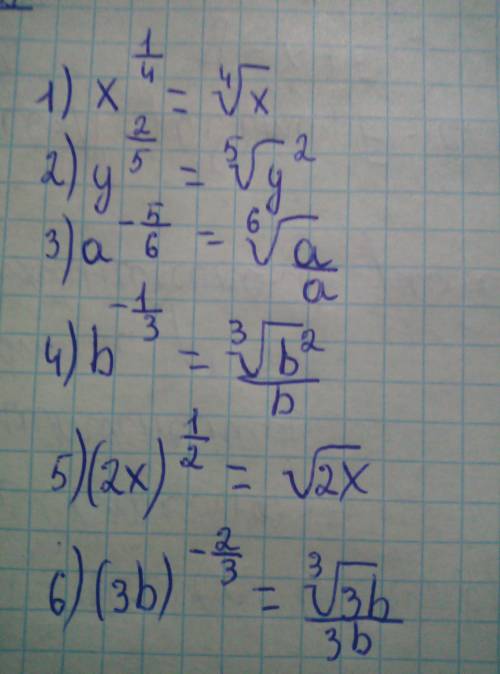 1) x^(1/4) = ⁴√x
2) y^(2/5) = ⁵√y²
3) a^(-5/6) = ⁶√a/a
4) b^(-1/3) = ³√b²/b
5) (2x)^(1/2) = √2x
6) (3b)^(-2/3) = ³√3b/3b